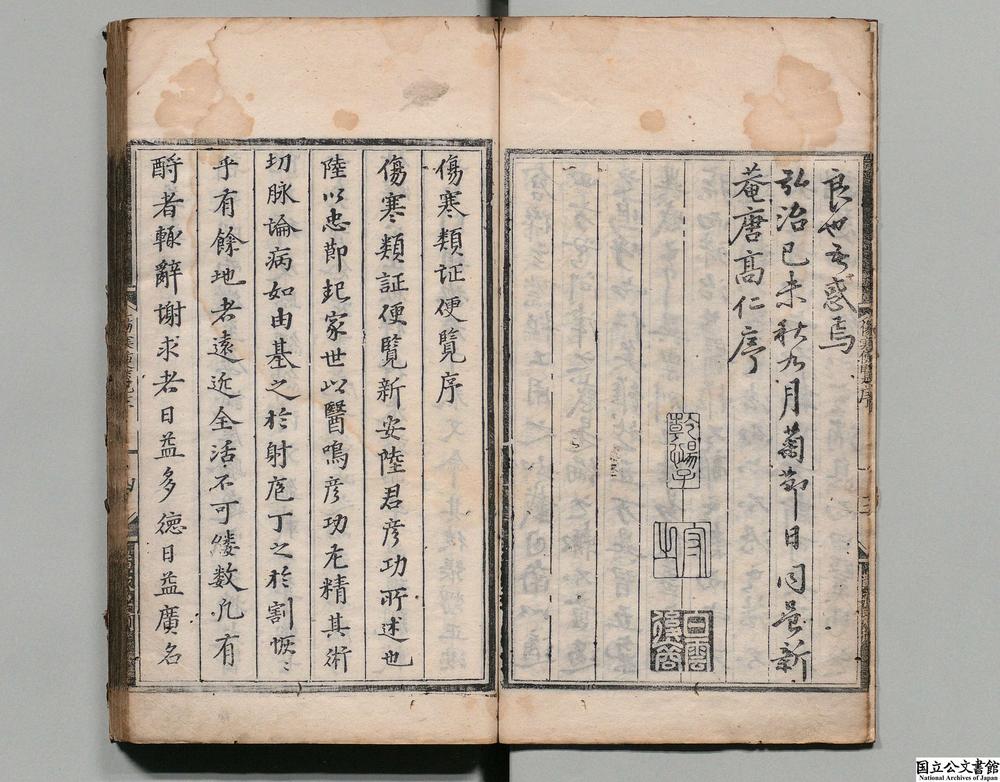 良也無惑焉
弘治己未秋九月菊節日同邑新
菴唐髙仁序
乾陽子
守之
白雲
傷寒類证便覽序
傷寒類証便覽新安陸君彦功所述也
陸以忠節起家世以醫鳴彦功尤精其術
切脉論病如由基之於射庖丁之於割恢〻
乎有餘地者遠近全活不可僂數凡有
酧者輙辭謝求者日益多德日益廣名
国立公文書館
National Archives of Japan